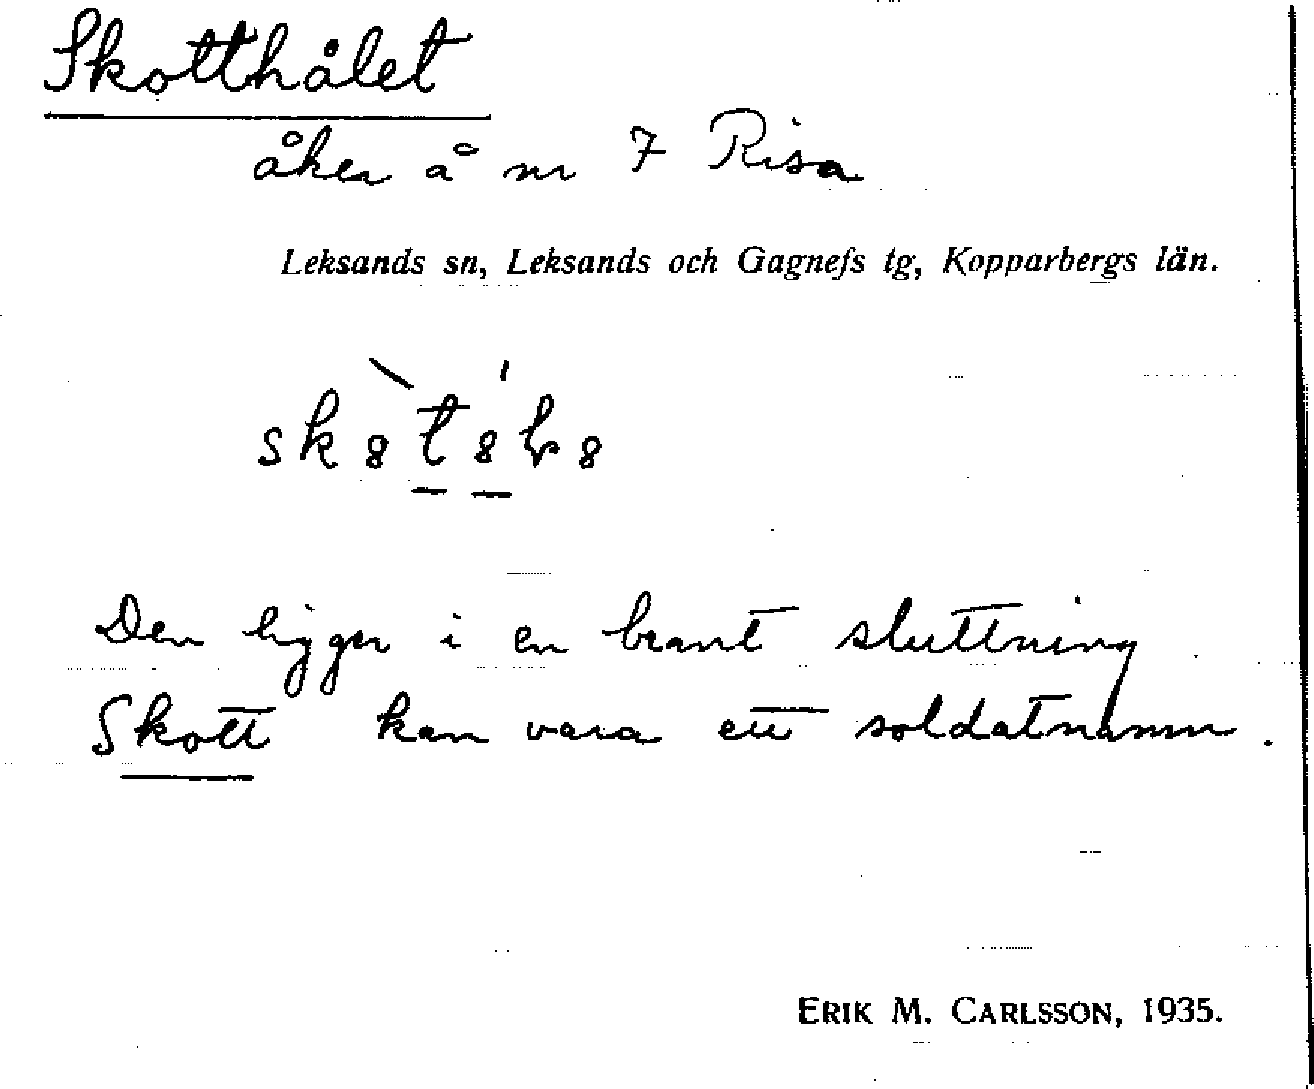 Skotthålet
åker å nr 7 Risa
Leksands sn, Leksands och Gagnefs tg, Kopparbergs län.
Den ligger i en brant sluttning
Skott kan vara ett soldatnamn.
ERIK M. CARLSSON, 1935.